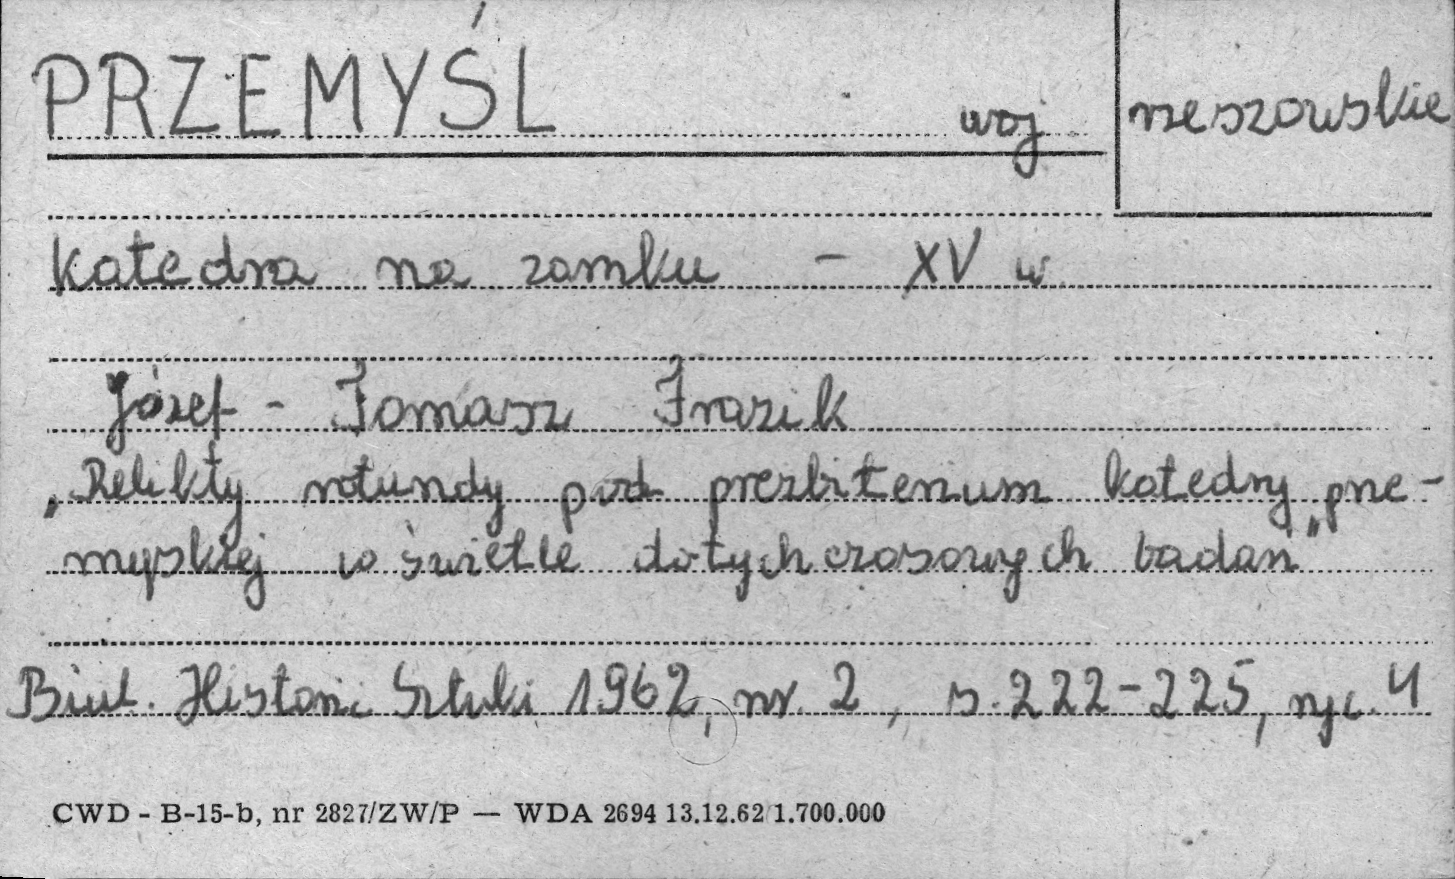 PRZEMYŚL woj rzeszowskie
katedra na zamku – XV w.
Józef - Tomasz Frazik
„Relikty rotundy pod prezbiterium katedry prze-
myskiej w świetle dotychczasowych badań"
Biul. Historii Sztuki 1962, nr. 2, s. 222-225, ryc. 4
CWD - B-15-b, nr 2827/ZW/P — WDA 2694 13.12.62 1.700.000